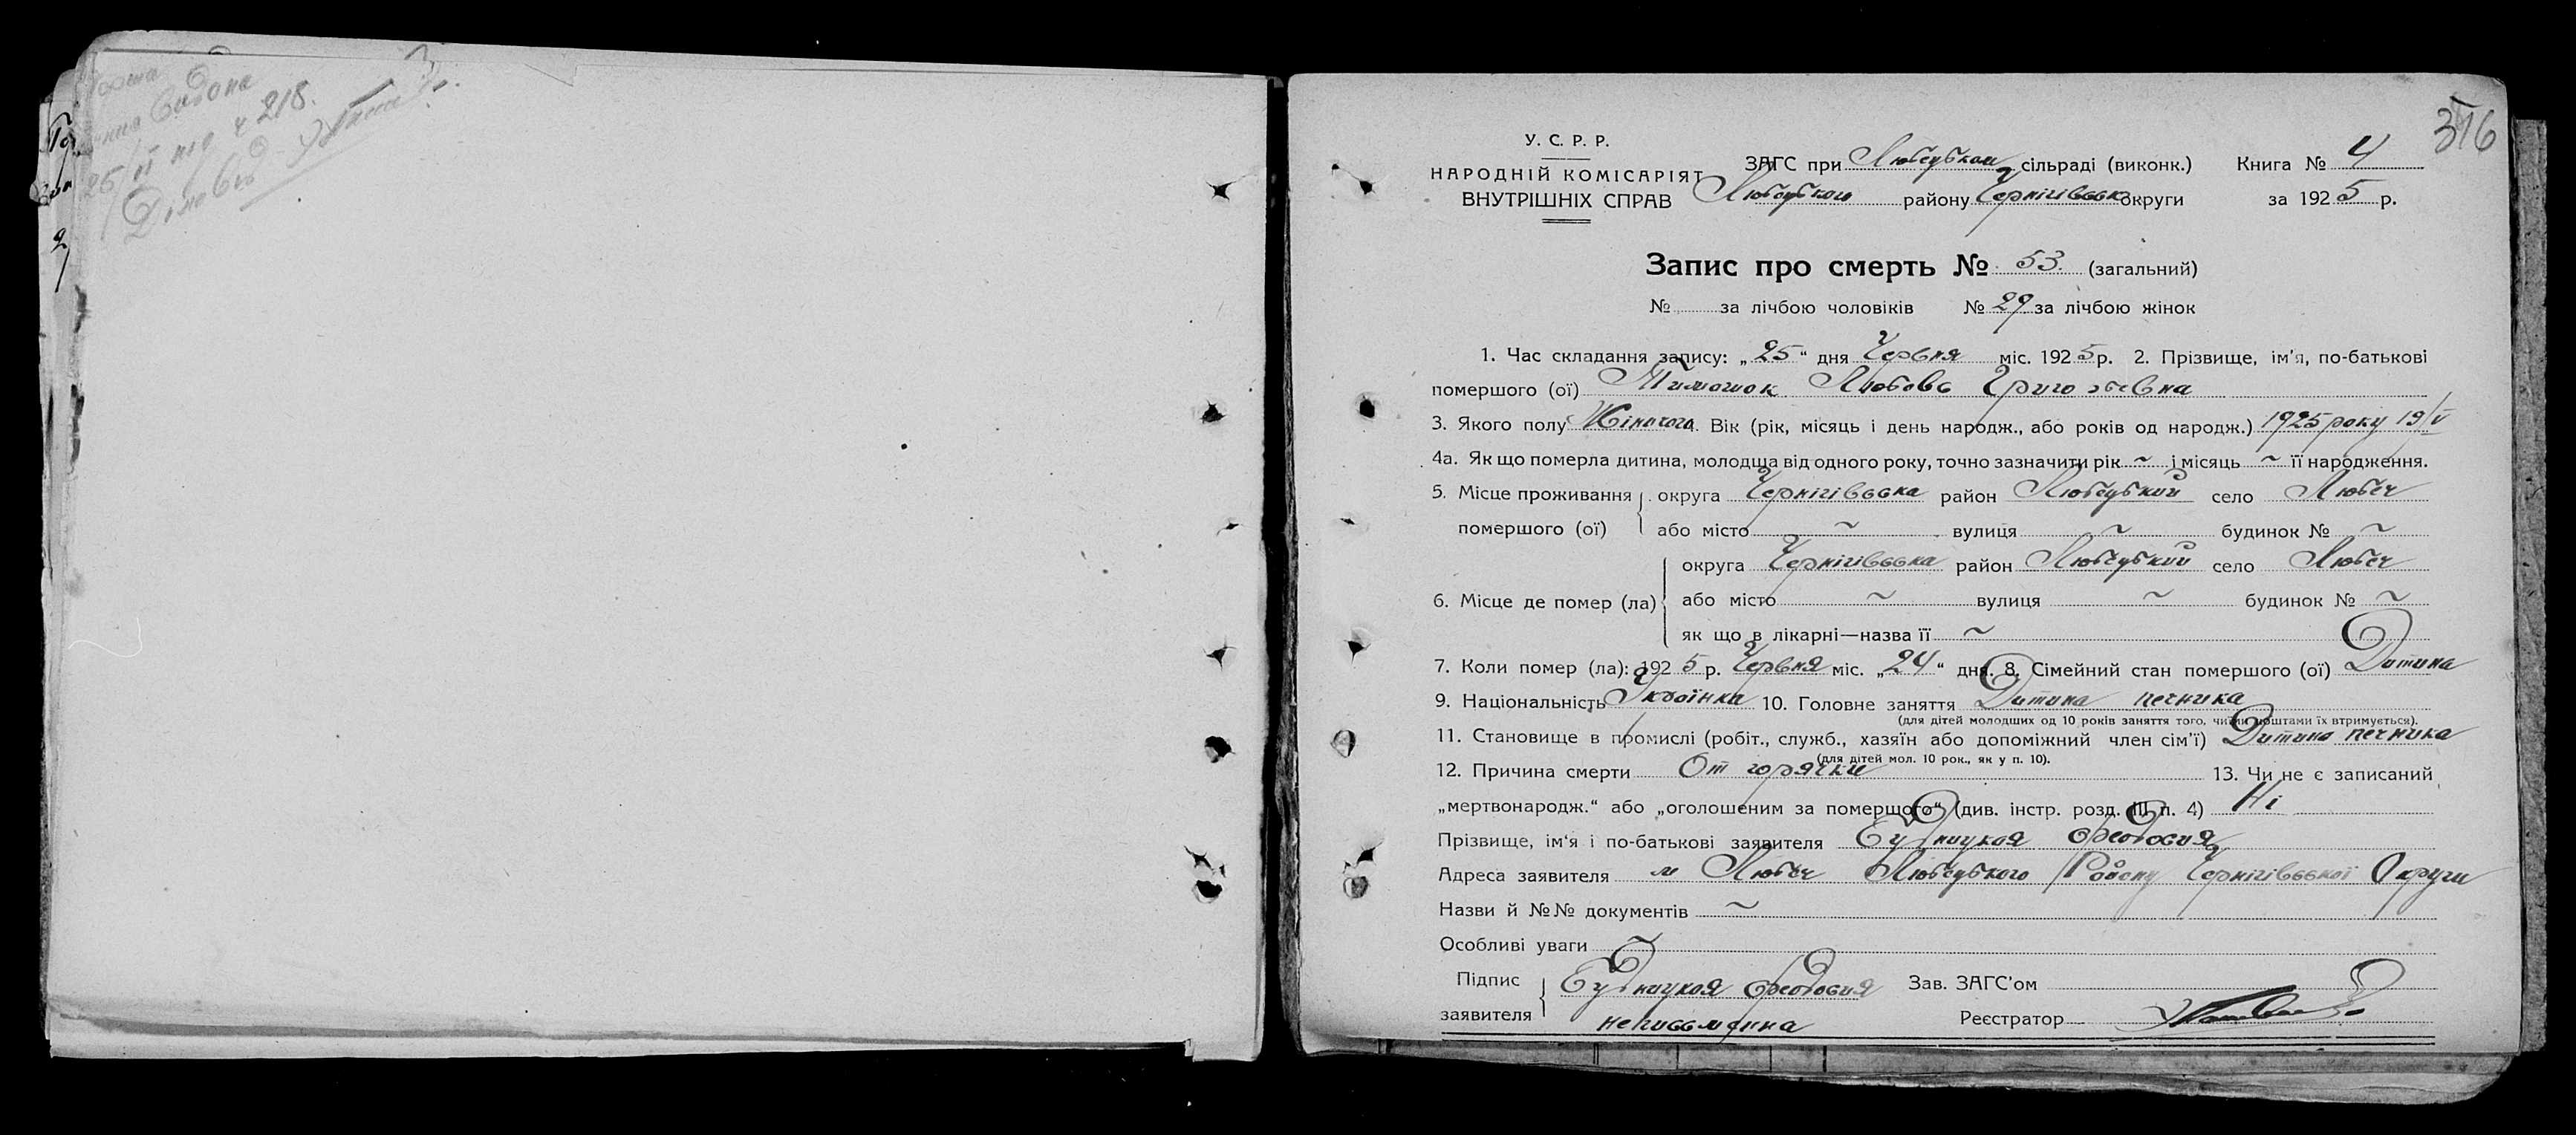 218.
25/VI
316
У. С. Р. Р.
НАРОДНІЙ КОМІСАРІЯТ
ВНУТРІШНІХ СПРАВ
ЗАГС при Любецькому сільраді (виконк.) Книга № 4
Любецького району Чернігівськ округи за 1925 р.
Запис про смерть № 53. (загальний)
№ за лічбою чоловіків № 29 за лічбою жінок
1. Час складання запису: „25“ дня Червня міс. 1925 р. 2. Прізвище, ім'я, по-батькові
помершого (ої) Тимошок Любовь Григорьевна
3. Якого полу Жіночого. Вік (рік, місяць і день народж., або років од народж.) 1925 року 19/V
4а. Як що померла дитина, молодша від одного року, точно зазначити рік ~ і місяць ~ її народження.
5. Місце проживання округа Чернігівська район Любецький село Любеч
помершого (ої) або місто ~ вулиця ~ будинок № ~
округа Чернігівська район Любецький село Любеч
6. Місце де помер (ла) або місто ~ вулиця ~ будинок № ~
як що в лікарні—назва її ~
7. Коли помер (ла): 1925 р. Червня міс. „24“ дня. 8. Сімейний стан помершого (ої) Дитина
9. Національність Українка 10. Головне заняття Дитина печника
(для дітей молодших од 10 років заняття того, чиїми коштами їх втримується).
11. Становище в промислі (робіт., служб., хазяїн або допоміжний член сім'ї) Дитина печника
(для дітей мол. 10 рок., як у п. 10).
12. Причина смерти От горячки 13. Чи не є записаний
„мертвонародж.“ або „оголошеним за помершого“ (див. інстр. розд. III п. 4) Ні
Прізвище, ім'я і по-батькові заявителя Будницкая Феодосия
Адреса заявителя м Любеч Любецького Району Чернігівської Округи
Назви й №№ документів ~
Особливі уваги ~
Підпис Будницкая Феодосия Зав. ЗАГС'ом
заявителя неписьменна Реєстратор